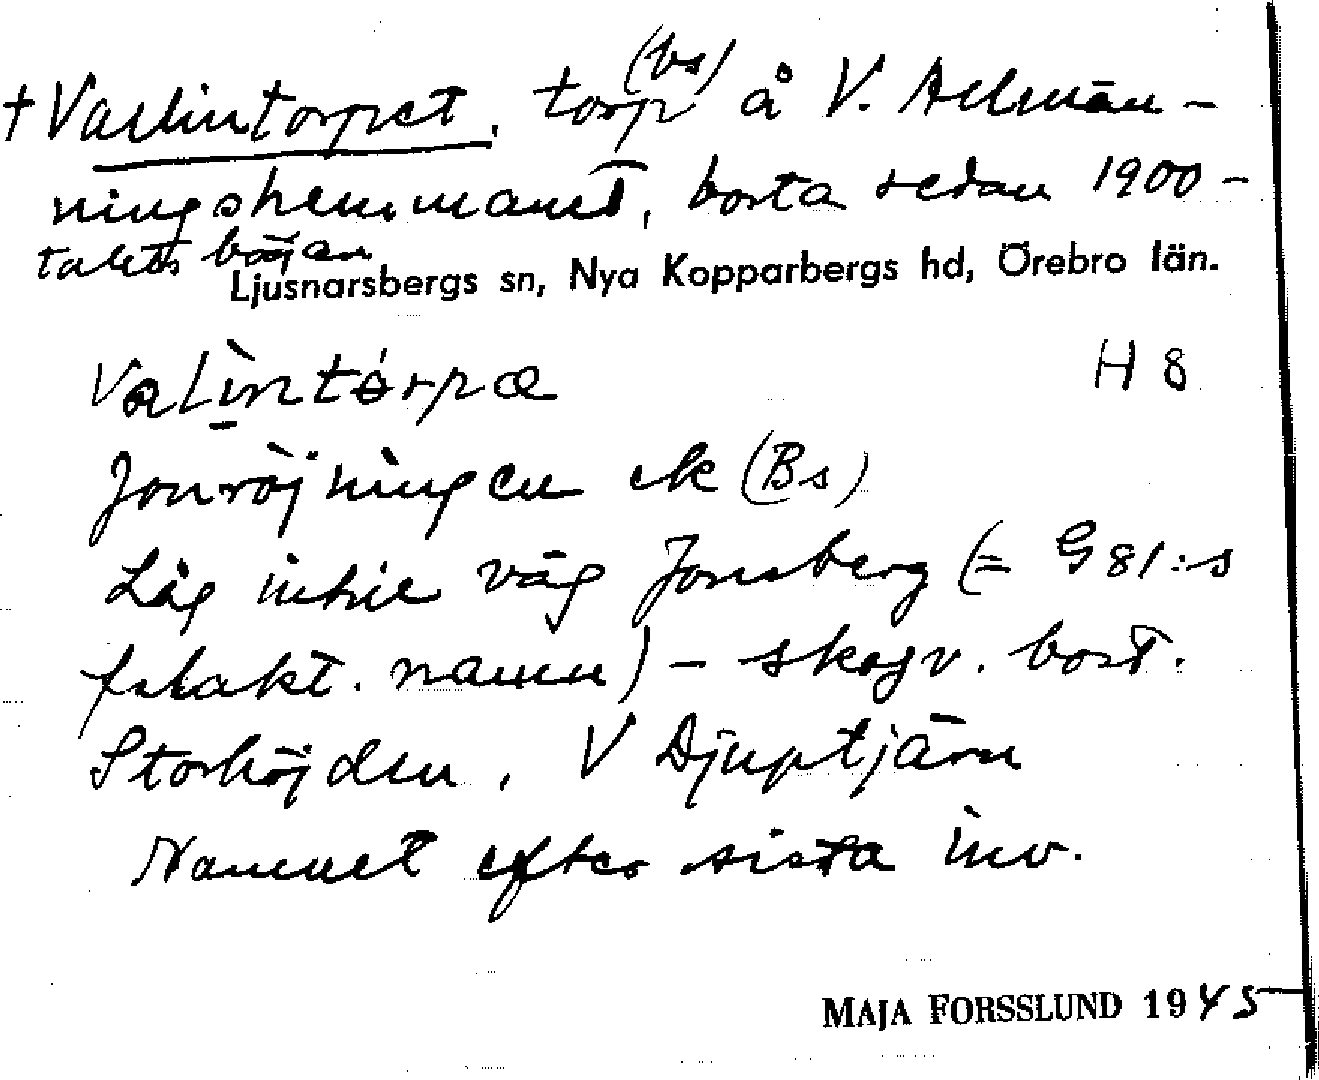 † Vallintorpet, torp (bs) å V. Allmän-
ningshemmanet, borta sedan 1900-
talets början
Ljusnarsbergs sn, Nya Kopparbergs hd, Örebro län.
Valintorpæ H 8
Jonröjningen ok (Bs)
Låg intill väg Jonsberg (= G 81:s
f.d. akt. namn) - skogv. bost.
Storhöjden, V Djuptjärn
Namnet efter sista inv.
MAJA FORSSLUND 1945